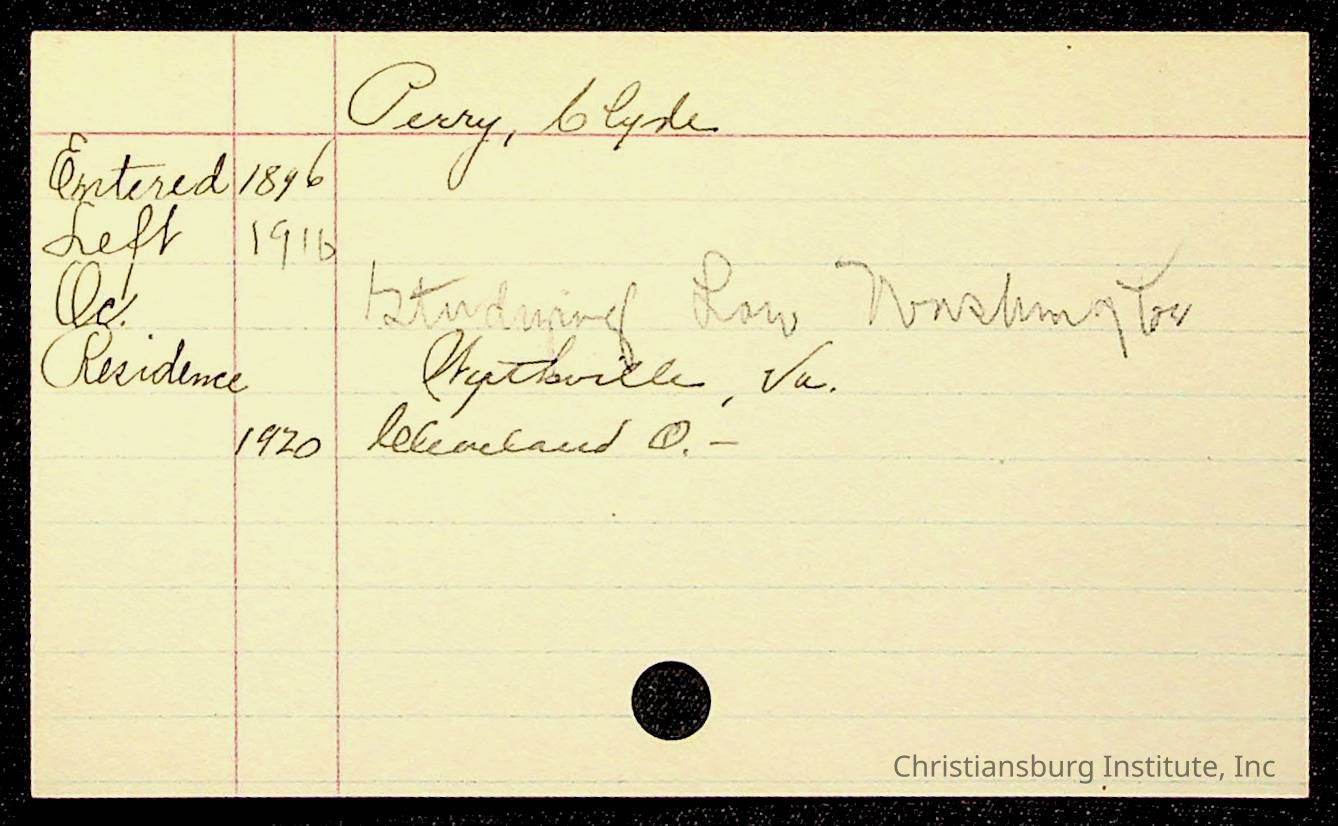 Perry, Clyde
Entered 1896
Left 1916
Oc. Studying Law Washington
Residence Wytheville, Va.
1920 Cleveland O. –
Christiansburg Institute, Inc